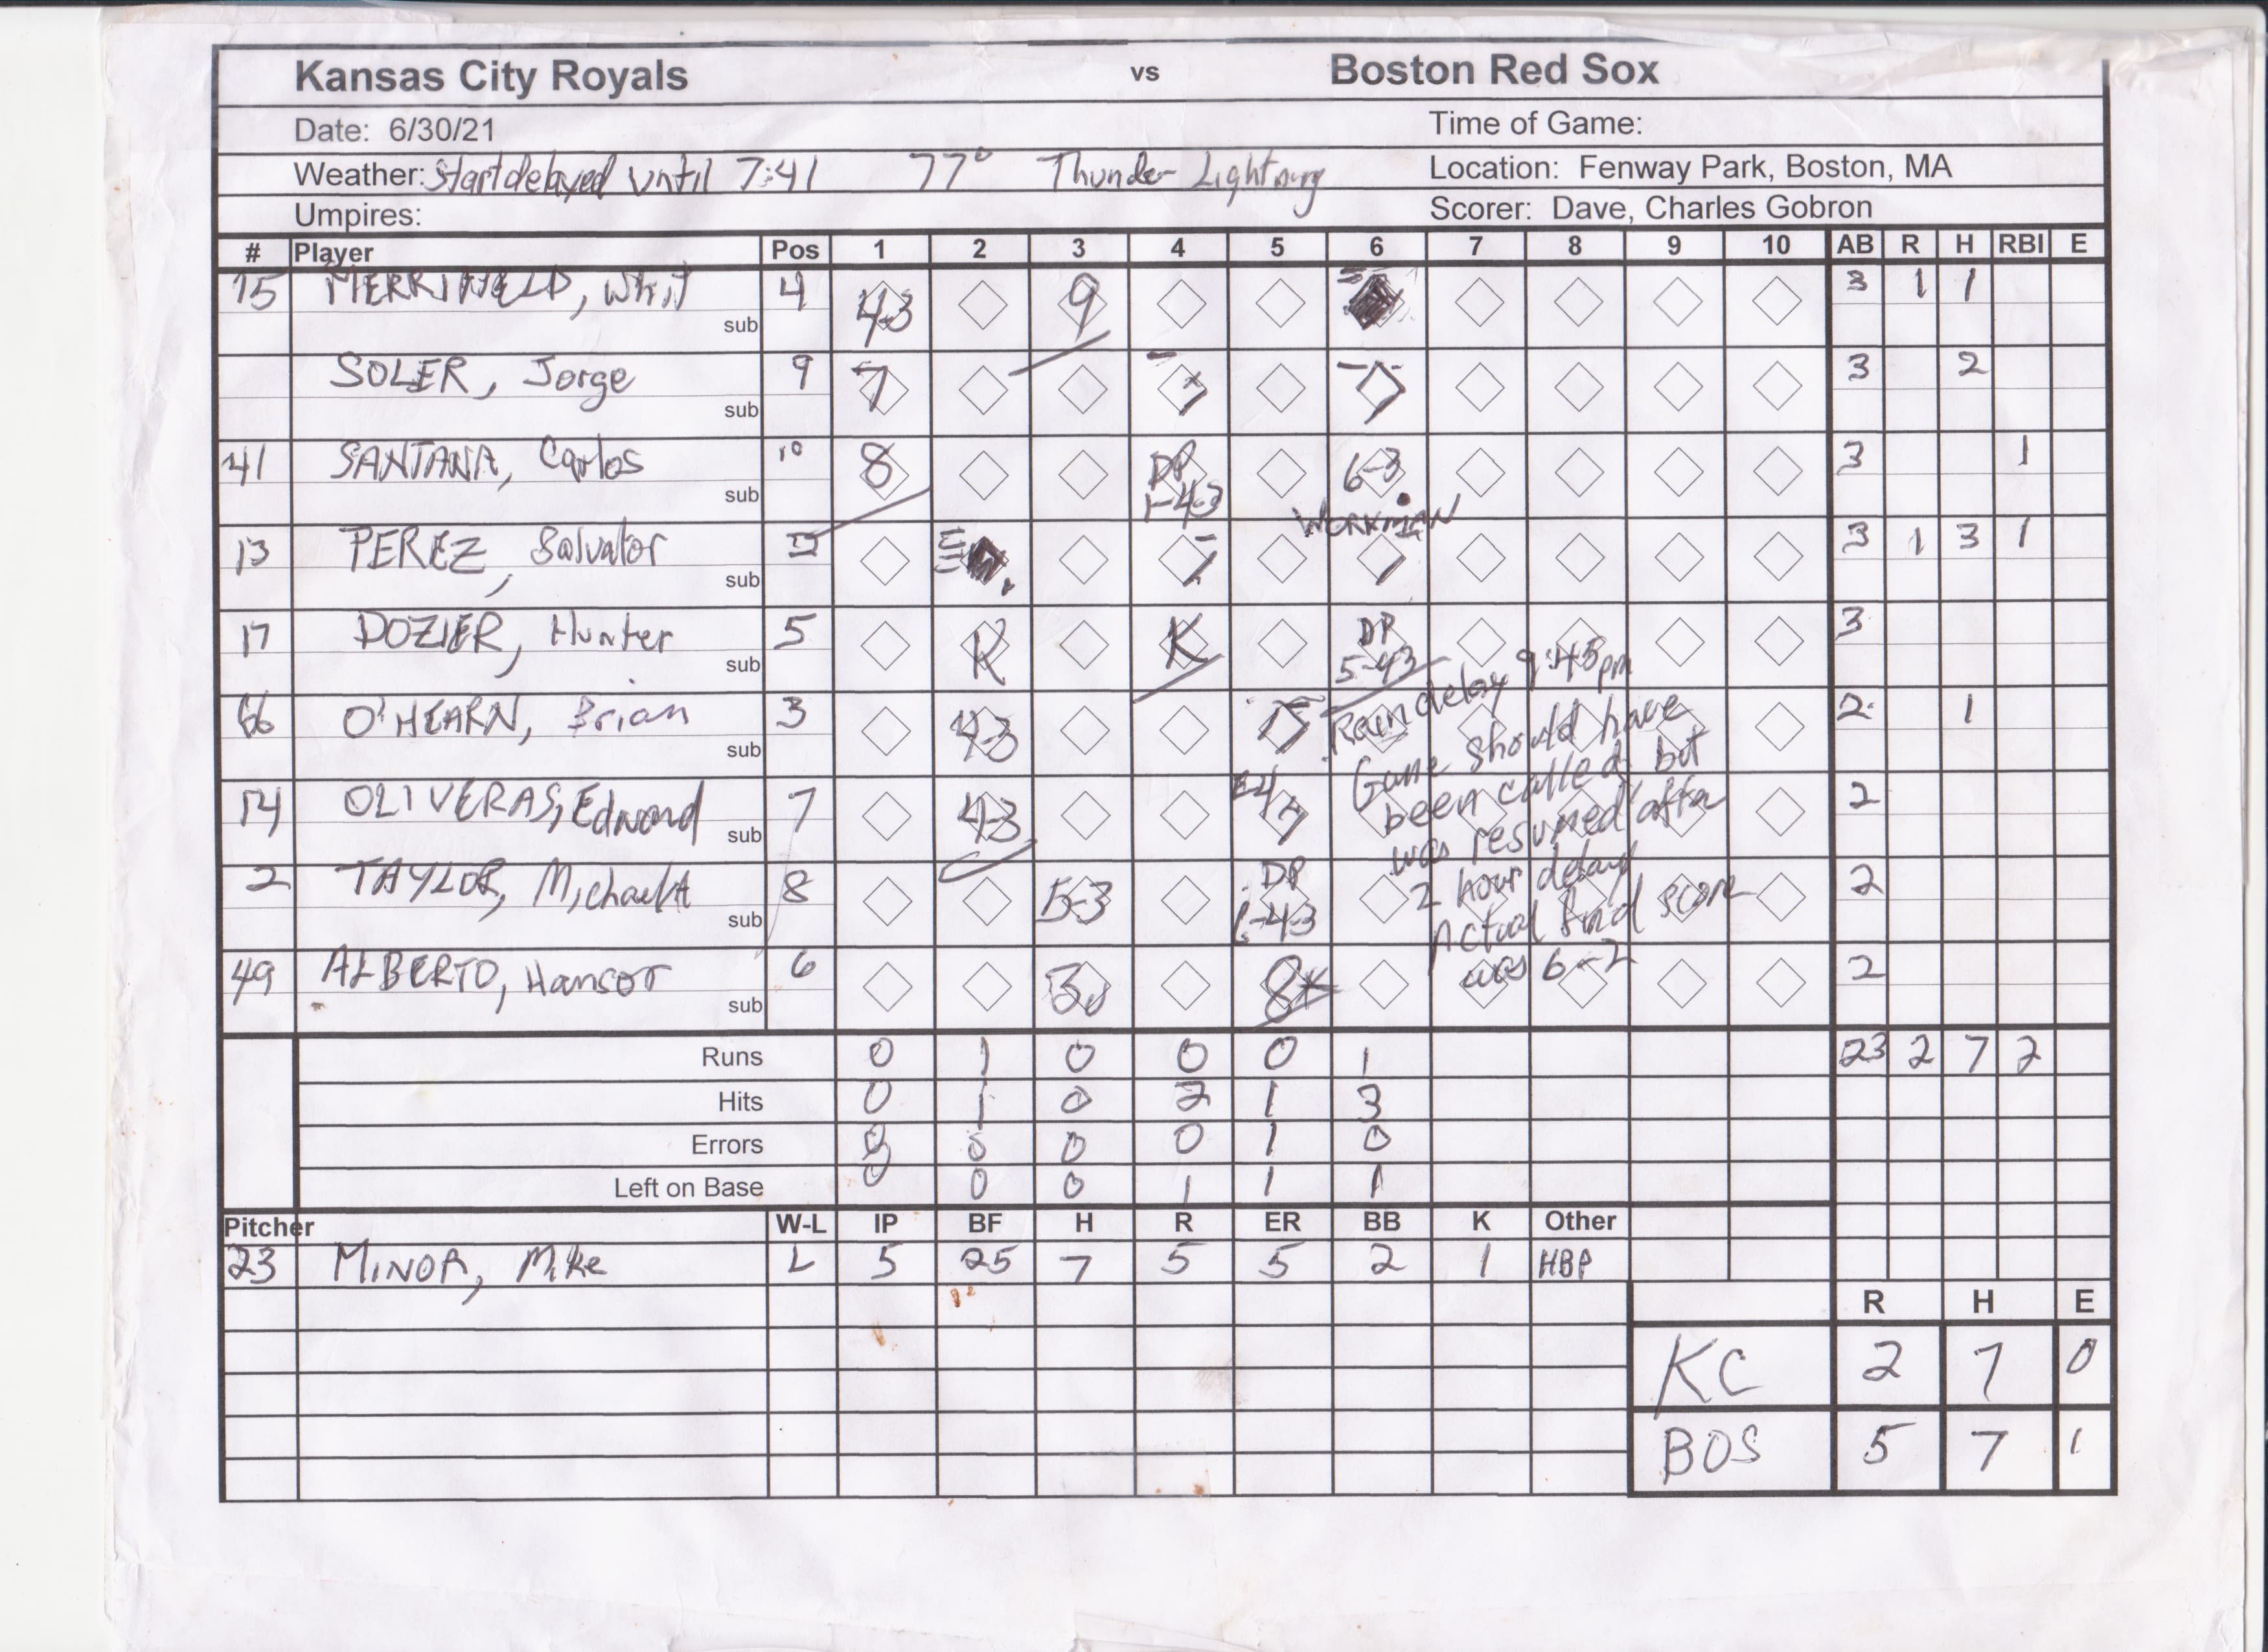 Kansas City Royals vs Boston Red Sox
Date: 6/30/21 Time of Game:
Weather: Start delayed until 7:41 77° Thunder Lightning Location: Fenway Park, Boston, MA
Umpires: Scorer: Dave, Charles Gobron
# Player Pos 1 2 3 4 5 6 7 8 9 10 AB R H RBI E
15 MERRIFIELD, Whit 4 43 9 3 1 1
sub
SOLER, Jorge 9 7 3 2
sub
41 SANTANA, Carlos 10 8 DP 1-4-3 6-3 3 1
sub
WORKMAN
13 PEREZ, Salvator 3 1 3 1
sub
17 DOZIER, Hunter 5 K K DP 5-43 3
sub
Rain delay 9:45pm
66 O'HEARN, Brian 3 43 2 1
sub
Game should have
14 OLIVERAS, Edmond 7 4-3 E4 2
sub
been called, but
was resumed after
2 TAYLOR, MichaelA 8 5-3 DP 6-4-3 2
sub
2 hour delay
Actual final score
was 6-2
49 ALBERTO, Hansor 6 3U 8* 2
sub
Runs 0 1 0 0 0 1 23 2 7 2
Hits 0 1 0 2 1 3
Errors 0 0 0 0 1 0
Left on Base 0 0 0 1 1 1
Pitcher W-L IP BF H R ER BB K Other
23 MINOR, Mike L 5 25 7 5 5 2 1 HBP
R H E
KC 2 7 0
BOS 5 7 1